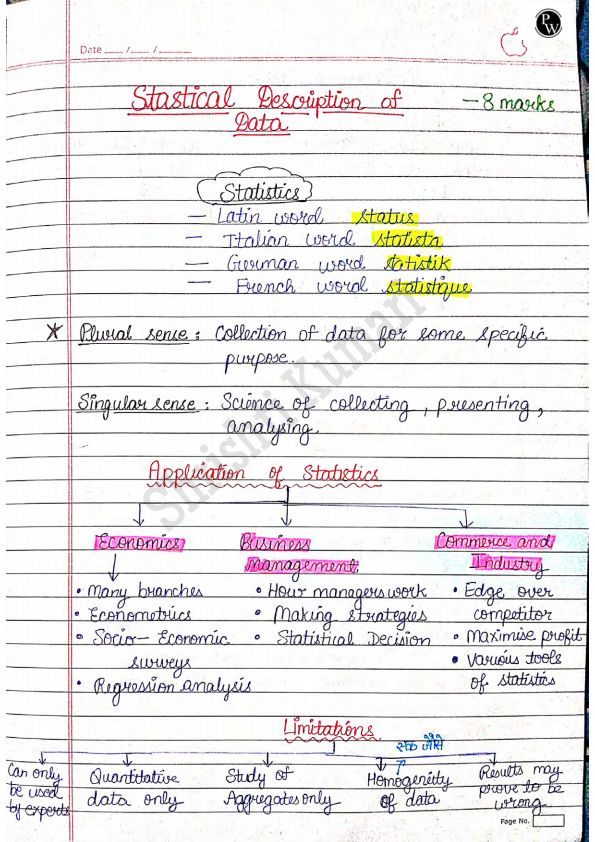 PW
Date ___/___/___
Stastical Description of - 8 marks
Data
Statistics
- Latin word status
- Italian word statista
- German word statistik
- French word statistique
* Plural sense : Collection of data for some specific
purpose.
Singular sense : Science of collecting, presenting,
analysing.
Srishti Kumari
Application of Statistics
Economics
• Many branches
• Econometrics
• Socio-Economic
surveys
• Regression analysis
Business
Management
• How managers work
• Making strategies
• Statistical Decision
Commerce and
Industry
• Edge over
competitor
• Maximise profit
• Various tools
of statistics
Limitations
Can only
be used
by experts
Quantitative
data only
Study of
Aggregates only
एक जैसे
Homogeneity
of data
Results may
prove to be
wrong.
Page No.